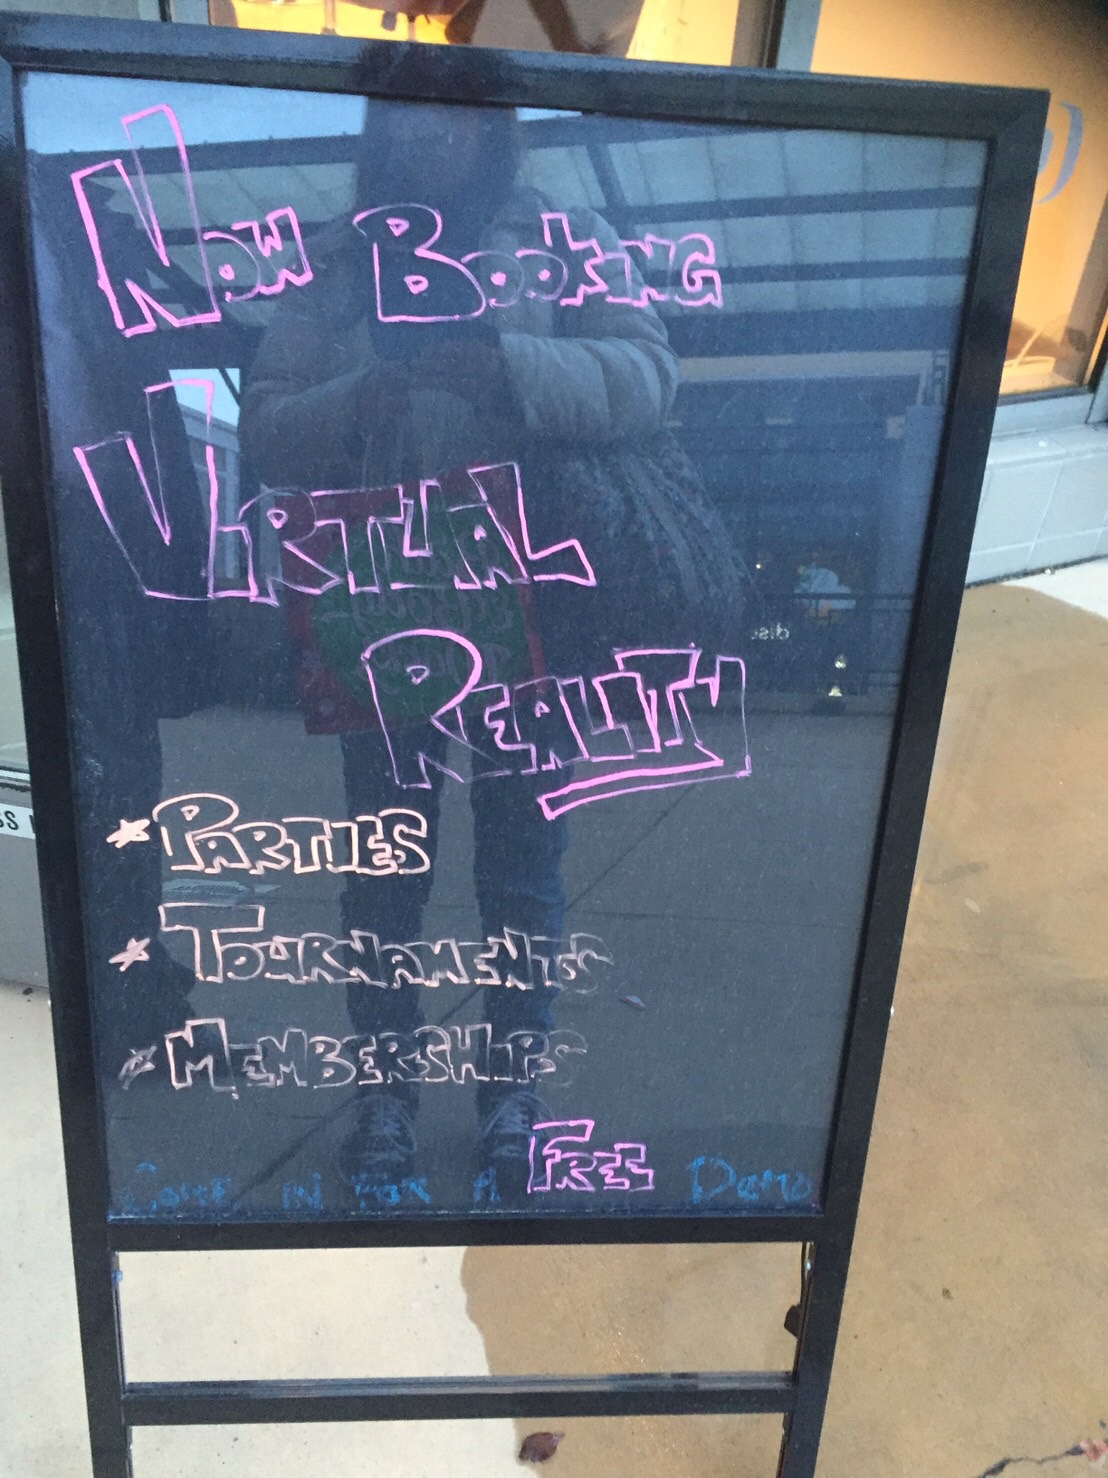 Now Booking
Virtual
Reality
* Parties
* Tournaments
* Memberships
Come in for a Free Demo